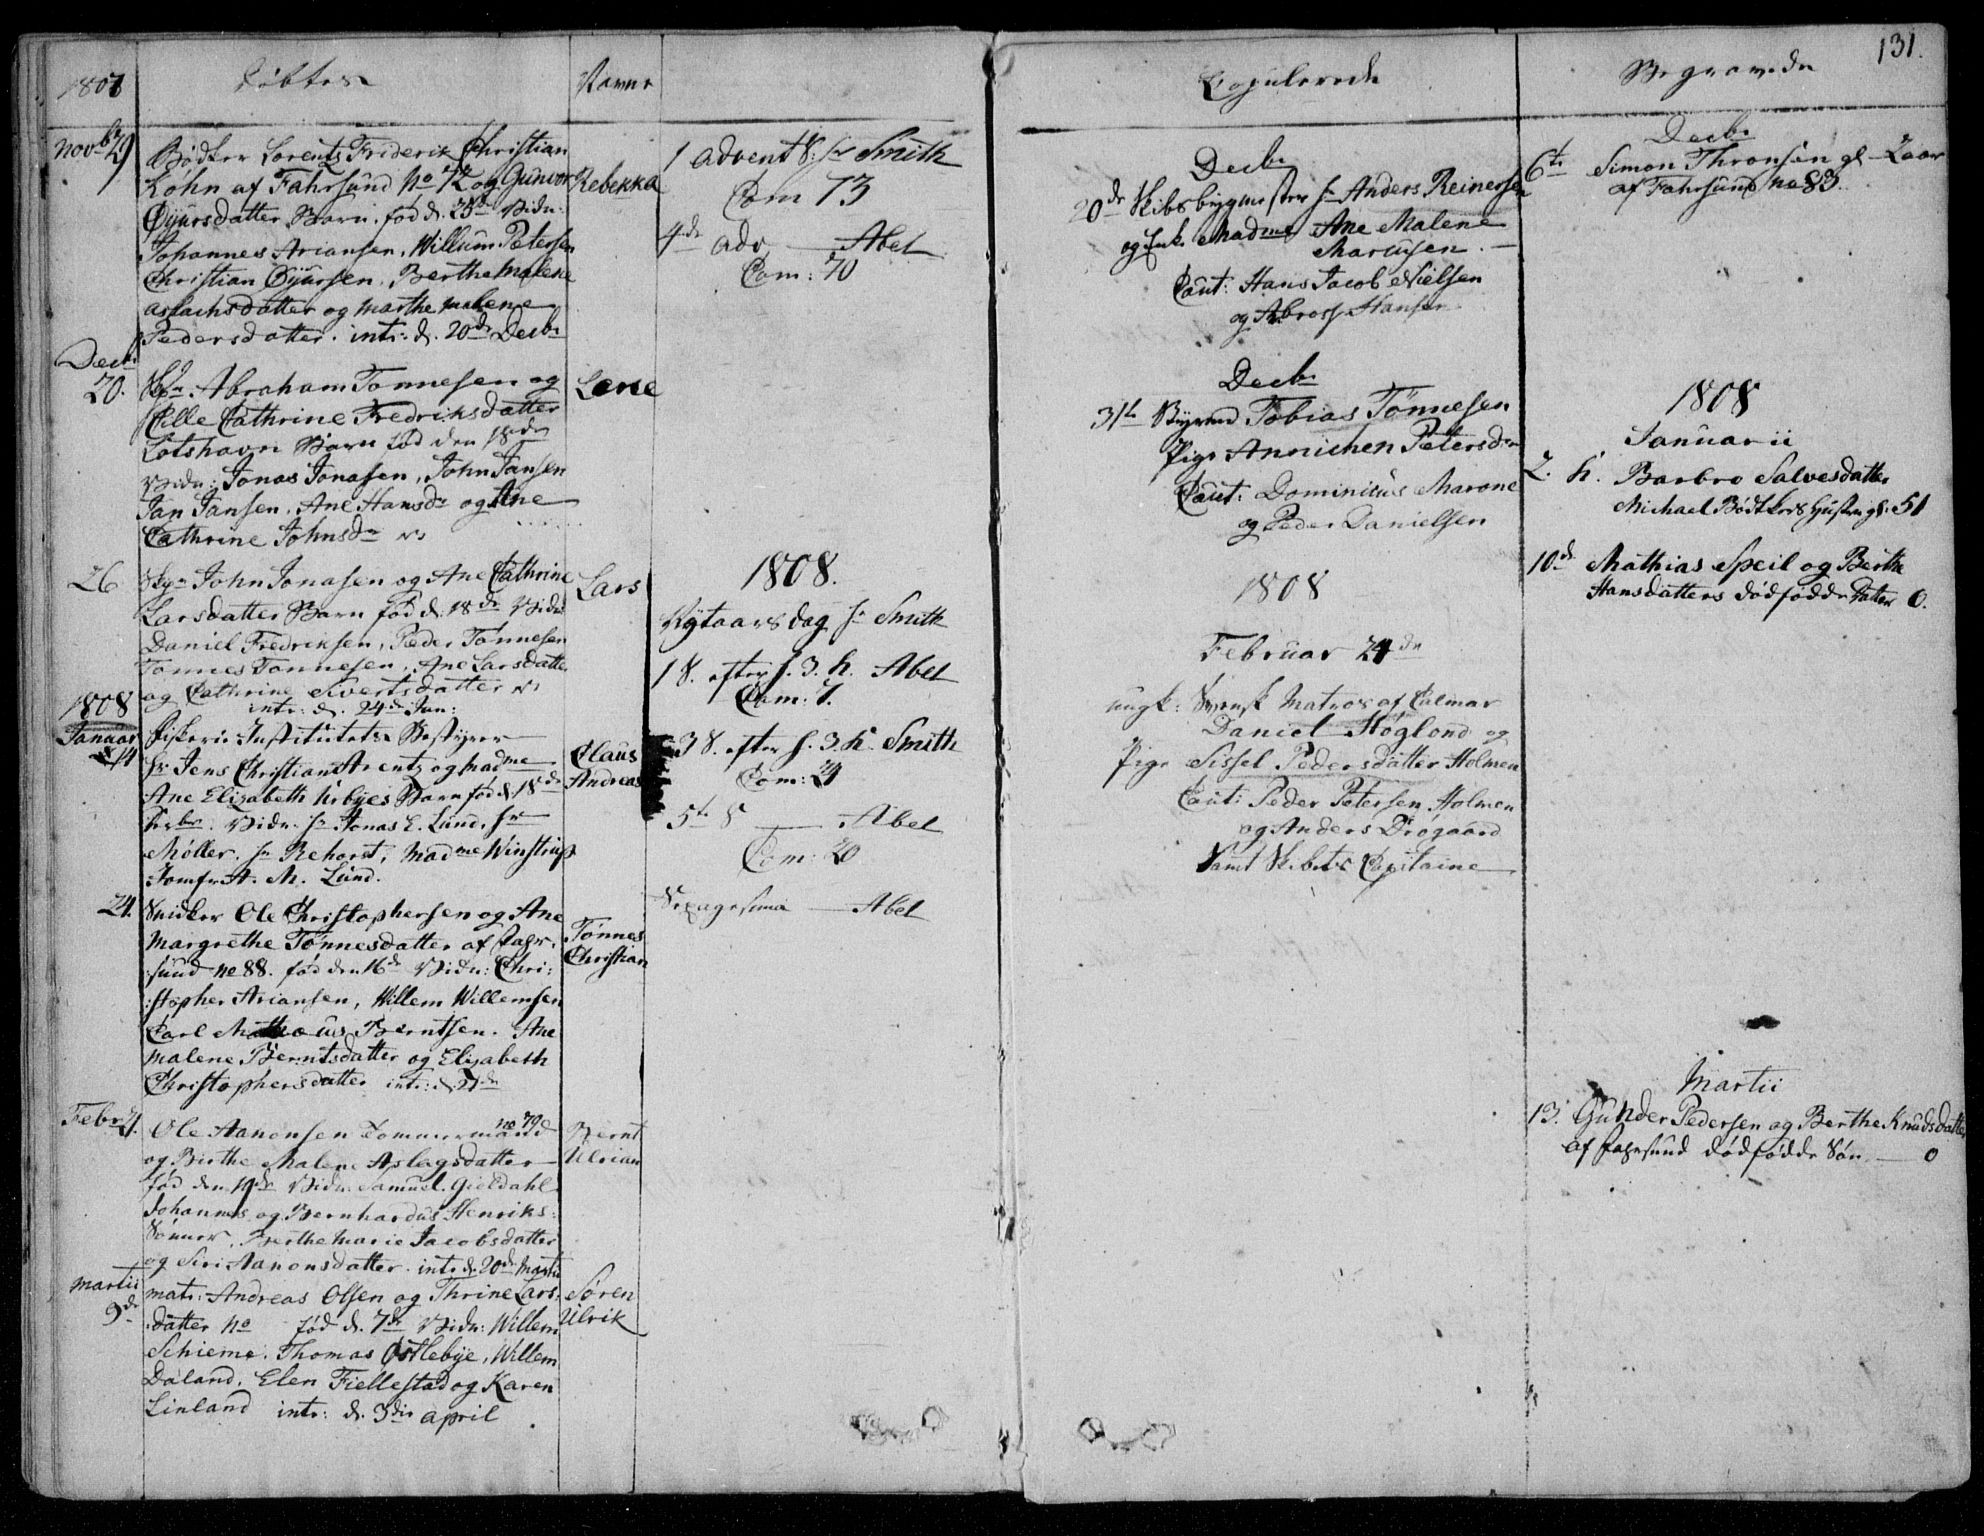 131.
1807 Døbte Navne
Novb 29 Bødker Lorentz Friderik Christian
Løhn af Fahrsund No 72 og Gunvor Rebekka
Øyürsdatter Barn. fød d. 25de Vidn:
Johannes Ariansen, Willum Petersen
Christian Øyürsen, Berthe Malene
Aslachsdatter og Marthe Malene
Pedersdatter. intr: d. 20de Decbr
Decbr
20. Abraham Tønnesen og Lene
Cille Cathrine Fredriksdatter
Lotshavn Barn fød den 18de
Vidn: Jonas Jonasen, John Jansen
Jan Jansen. Ane Hansdr og Ane
Cathrine Johnsdr
26 John Jonasen og Ane Cathrine Lars
Larsdatter Barn fød d. 18de Vidn
Daniel Fredriksen, Peder Tønnesen
Tønnes Tønnesen, Ane Larsdatter
og Cathrine Sivertsdatter
intr: d. 24de Jan:
1808
Januar
Fiskerie Institutets Bestyrer
14 Hr Jens Christian Arentz og Madme Claus
Ane Elizabeth Urbyes Barn fød d. 18de Andreas
Vidn. Hr Jonas E. Lund, Hr
Møller. Hr Rehorst, Madme Winstrup
Jomfr A. M. Lund.
24. Snidker Ole Christophersen og Ane
Margrethe Tønnesdatter af Fahr: Tønnes
:sund no 88. fød den 16de Vidn: Chri: Christian
:stopher Ariansen, Willem Willemsen
Carl Berntsen. Ane
Malene Berntsdatter og Elizabeth
Christophersdatter intr: d. 21de
no 79
Febr 21. Ole Aanonsen Tømmermand Bernt
og Birthe Malene Aslagsdatter Ulrian
fød den Vidn. Samuel Gieldahl
Johannes og Bernhardus Henriks:
Sønner, Berthe Marie Jacobsdatter
og Siri Aanonsdatter. intr d. 20de Martii
Martii Matr: Andreas Olsen og Thrine Lars: Søren
9de datter No fød d. 7de Vidn: Willem Ulrik
Schieme. Thomas Østlebye, Willem
Daland, Elen Fiellestad og Karen
Linland intr: d. 3die April
1 Advent S: Hr Smith
Com 73
4de Adv. — Abel
Com: 70
1808.
Nytaarsdag Hr Smith
1 S. efter h. 3. K. Abel
Com: 7.
3 S. efter h. 3. K. Smith
Com: 21
5te S — Abel
Com: 20
Sexagesima — Abel
Copulerede
Decbr
20de Skibsbygmester Hr Anders Reinersen
og Enke Madme Ane Malene
Marcusen.
Caut: Hans Jacob Nielsen
og Hansen
Decbr
31te Tobias Tønnesen
Pige Annichen Petersdr
Caut: Dominicus Marone
og Peder Danielsen
1808
Februar 24de
ungk: Svensk Matros af Calmar
Daniel Høglond og
Pige Sissel Pedersdatter Holmen
Caut: Peder Petersen Holmen
og Anders Drøgaard
Samt Skibets Capitaine
Begravede
Decbr
6te Simon Thronsen gl
af Fahrsund no 83.
1808
Januarii
2. K. Barbro Salvesdatter
Michael Bødtkers Hustru gl: 51
10de Mathias Speil og Berthe
Hansdatters dødfødde Datter 0.
Martii
13. Gunder Pedersen og Berthe Knudsdatter
af Fahrsund dødfødde Søn — 0